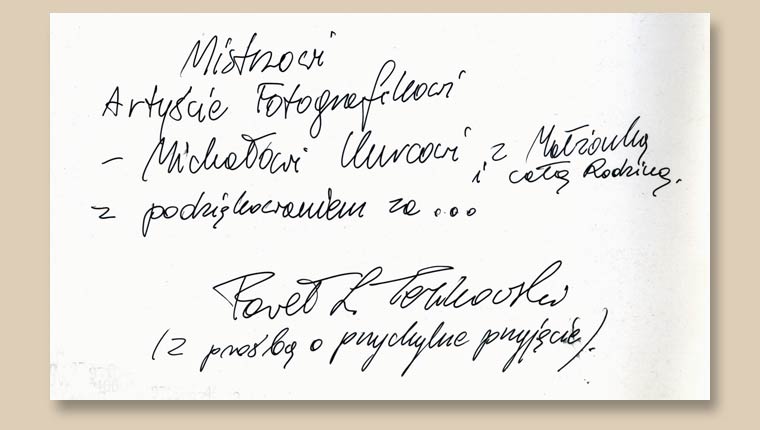 Mistrzowi
Artyście Fotografikowi
– Michałowi Kurcowi z Małżonką
i całą Rodziną.
z podziękowaniem za ...
Paweł L.
(z prośbą o przychylne przyjęcie).